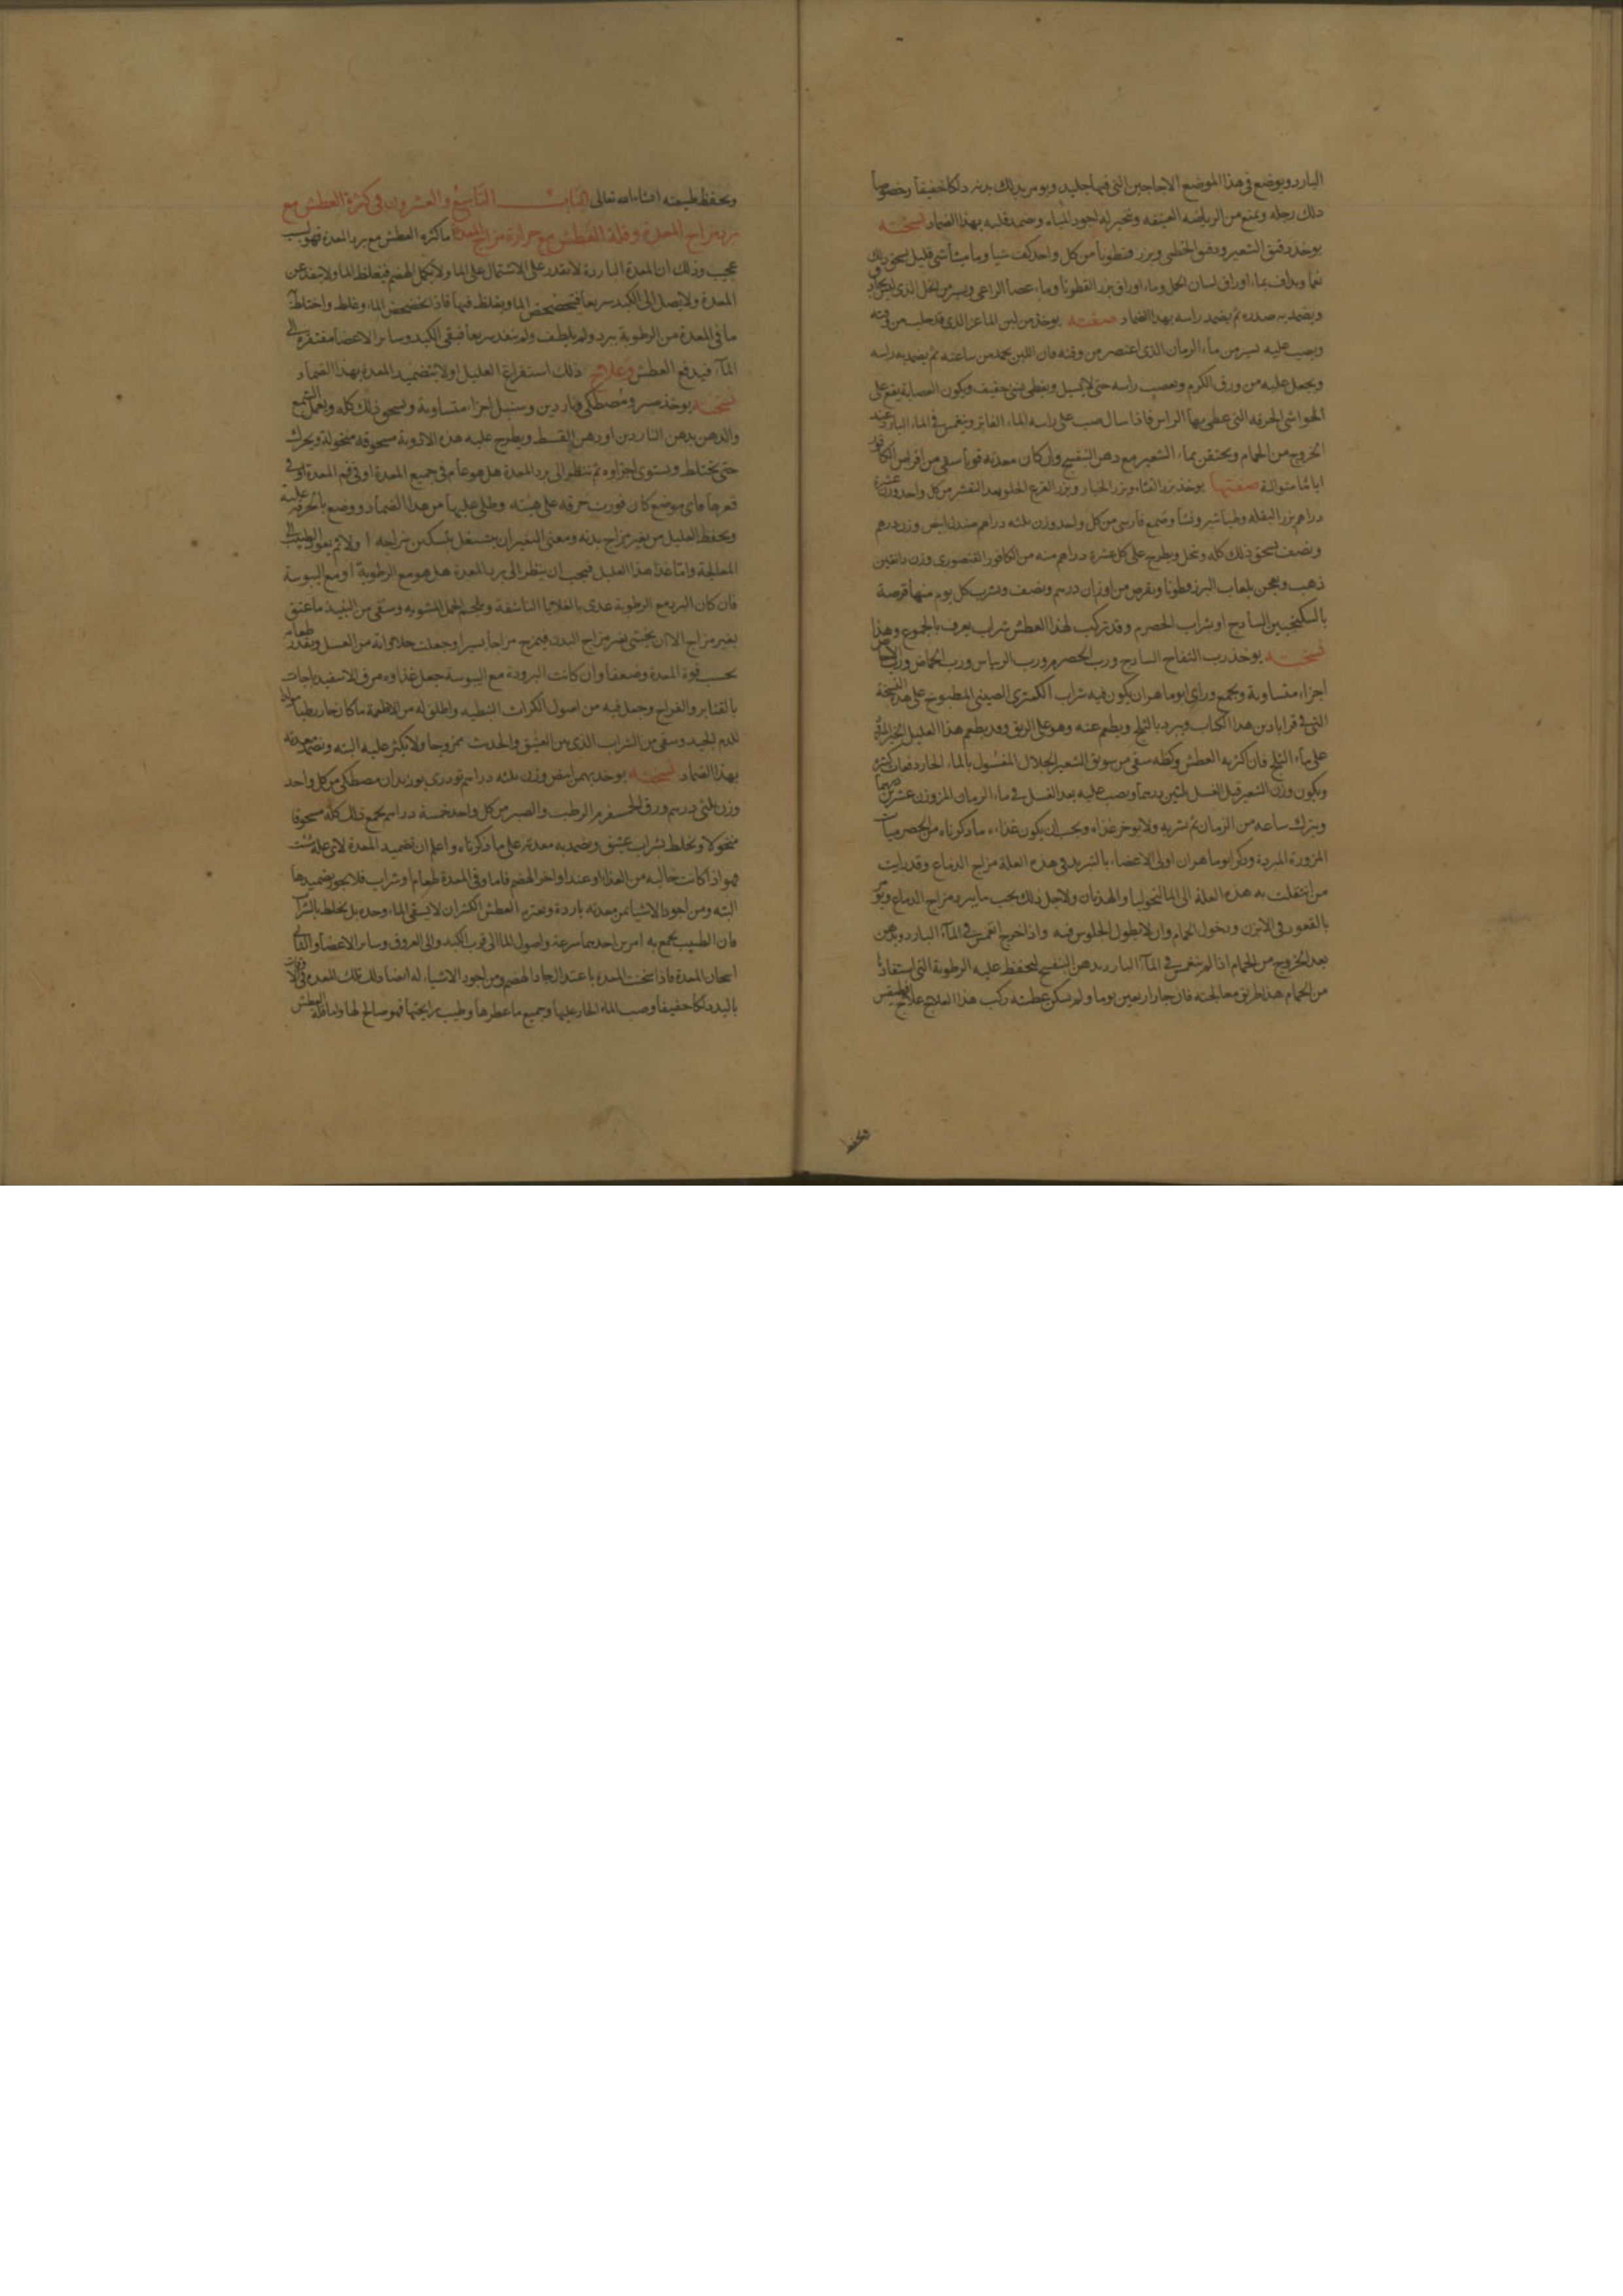 البارد ويوضع في هذا الموضع الاجاجين التي فيها جليد ويومر بدلك بدنه دلكا خفيفا وخصوصا
دلك رجله ويمنع من الرياضه العنيفه وتخير له اجود المياه وضمد قلبه بهذا الضماد نسخته
يوخذ دقيق الشعير ودقيق الخطمى وبزر قطونا من كل واحد كف شيا وماميثا شى قليل يسحق ذلك
نعما ويداف بماء اوراق لسان الحمل وماء اوراق بزر القطونا وماء عصا الراعى ويسير من الخل الذى ليس بحاد
ويضمد به صدره ثم يضمد راسه بهذا الضماد صفته يوخذ من لبن الماعز الذى قد حلب من وقته
ويصب عليه يسير من ماء الرمان الذى اعتصر من وقته فان اللبن يجمد من ساعته ثم يضمد به راسه
ويجعل عليه من ورق الكرم ويعصب راسه حتى لا يسيل ويغطى بشى خفيف ويكون العصابة يقع على
الحواشى الخرقه التى غطى بها الراس فاذا سال صب على راسه الماء الفاتر وينغمس في الماء البارد عند
الخروج من الحمام ويحتقن بماء الشعير مع دهن البنفسج وان كان معدته قويا سقى من اقراص الكافور
اياما متوالية صفتها يوخذ بزر القثاء وبزر الخيار وبزر القرع الحلو بعد التقشر من كل واحد وزن عشرة
دراهم بزر البقله وطباشير ونشا وصمغ فارسى من كل واحد وزن ثلثه دراهم صندل ابيض وزن درهم
ونصف يسحق ذلك كله وينخل ويطرح على كل عشرة دراهم منه من الكافور القنصورى وزن دانقين
ذهب ويعجن بلعاب البزرقطونا ويقرص من اوزان درهم ونصف ويشرب كل يوم منها قرصة
بالسكنجبين الساذج او بشراب الحصرم وقد تركب لهذا العطش شراب يعرف بالجموع وهذا
نسخته يوخذ رب التفاح الساذج ورب الحصرم ورب الريباس ورب الحماض ورب الاجاص
اجزاء متساوية ويجمع وراى ابو ماهر ان يكون فيه شراب الكمثرى الصينى المطبوخ على هذه النسخة
التى في قراباذين هذا الكتاب ويبرد بالثلج ويطعم عنه وهو على الريق وقد يطعم هذا العليل الخبز المبرد
على ماء الثلج فان كثر به العطش وكظه سقى من سويق الشعير الجلال المغسول بالماء الحار دفعات كثيرة
ويكون وزن الشعير قبل الغسل ثلثين درهما ويصب عليه بعد الغسل في ماء الرمان المز وزن عشرين درهما
ويترك ساعه من الزمان ثم يشربه ولا يوخر غذاءه ويجب ان يكون غذاءه ما ذكرناه من الحصرميات
المزورة المبردة وذكر ابو ماهر ان اولى الاعضاء بالتبريد في هذه العلة مزاج الدماغ وقد رايت
من انتقلت به هذه العلة الى المالنخوليا والهذيان ولاجل ذلك يجب ما يبرد مزاج الدماغ ويومر
بالقعود في الابزن ودخول الحمام وان لا يطول الجلوس فيه واذا خرج انغمس في الماء البارد ويدهن
بعد الخروج من الحمام اذا لم ينغمس في الماء البارد بدهن البنفسج ليحفظ عليه الرطوبة التى استفادها
من الحمام هذا طريق معالجته فان جاز اربعين يوما ولم يسكن عطشه ركب هذا العلاج علاج
ويحفظ
ويحفظ طبيعته ان شاء الله تعالى الباب التاسع والعشرون في كثرة العطش مع
برد مزاج المعدة وقلة العطش مع حرارة مزاج المعدة اما كثره العطش مع برد المعدة فهو لسبب
عجيب وذلك ان المعدة الباردة لا تقدر على الاشتمال على الماء ولا يكمل الهضم فيغلظ الماء ولا ينفذ عن
المعدة ولا يصل الى الكبد سريعا فيتخضخض الماء ويغلظ فيها فاذا تخضخض الماء وغلظ واختلط
ما في المعدة من الرطوبة يبرد ولم يلطف ولم ينفذ سريعا فيبقى الكبد وساير الاعضا مفتقره الى
الماء فيدفع العطش وعلاج ذلك استفراغ العليل اولا بتضميد المعدة بهذا الضماد
نسخته يوخذ صبر ومصطكى وناردين وسنبل اجزا متساوية ويسحق ذلك كله ويعمل الشمع
والدهن بدهن الناردين او دهن القسط ويطرح عليه هذه الادوية مسحوقه منخولة ويحرك
حتى يختلط ويستوى اجزاوه ثم تنظر الى برد المعدة هل هو عام في جميع المعدة او في فم المعدة او في
قعرها فاى موضع كان قورت خرقه على هيئته وطلى عليها من هذا الضماد ووضع بالخرقه عليه
ويحفظ العليل من تغير مزاج بدنه ومعنى التغير ان يشتغل بتسكين مزاجه اولا ثم يعود الطبيب الى
المعالجة واما غذا هذا العليل فيجب ان ينظر الى برد المعدة هل هو مع الرطوبة او مع اليبوسة
فان كان البرد مع الرطوبة غذى بالقلايا الناشفة ولحم الحمل المشويه وسقى من النبيذ ما عتق
بغير مزاج الا ان يخشى تغير مزاج البدن فيمزج مزاجا يسيرا وجعلت حلاواته من العسل ويقدر طعامه
بحسب قوة المعدة وضعفها وان كانت البرودة مع اليبوسة جعل غذاوه مرق الاسفيدباجات
بالقنابر والفراخ وجعل فيه من اصول الكراث النبطيه واطلق له من الاطعمة ما كان حارا رطبا مولدا
للدم الجيد وسقى من الشراب الذى بين العتيق والحديث ممزوجا ولا يكثر عليه البته وتضمد معدته
بهذا الضماد نسخته يوخذ بهمن ابيض وزن ثلثه دراهم تودرى بوزيدان مصطكى من كل واحد
وزن ثلثى درهم ورق الرطب والصبر من كل واحد خمسة دراهم يجمع ذلك كله مسحوقا
منخولا ويخلط بشراب عتيق ويضمد به معدته على ما ذكرناه واعلم ان تضميد المعدة لاى علة شئت
هو اذا كانت خاليه من الغذا او عند اواخر الهضم فاما وفي المعدة طعام او شراب فلا يجوز تضميدها
البته ومن اجود الاشيا لمن معدته باردة ويعتريه العطش الكثير ان لا يسقى الماء وحده بل يخلط بالشراب
فان الطبيب يجمع به امرين احدهما سرعة وصول الماء الى قرب الكبد والى العروق وساير الاعضا والثانى
اسخان المعدة فاذا سخنت المعدة باعتدال جاد الهضم ومن اجود الاشياء له ايضا دلك تلك المعدة في الاوقات
باليد دلكا خفيفا وصب الماء الحار عليها وجميع ما عطرها وطيب رايحتها فهو صالح لها واما قلة العطش